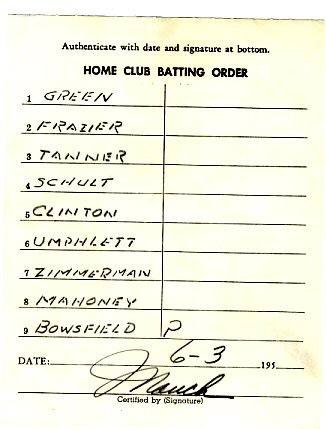 Authenticate with date and signature at bottom.
HOME CLUB BATTING ORDER
1 GREEN
2 FRAZIER
3 TANNER
4 SCHULT
5 CLINTON
6 UMPHLETT
7 ZIMMERMAN
8 MAHONEY
9 BOWSFIELD P
DATE: 6-3 195
J Mauch
Certified by (Signature)